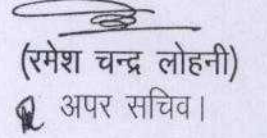 (रमेश चन्द्र लोहनी)
अपर सचिव।